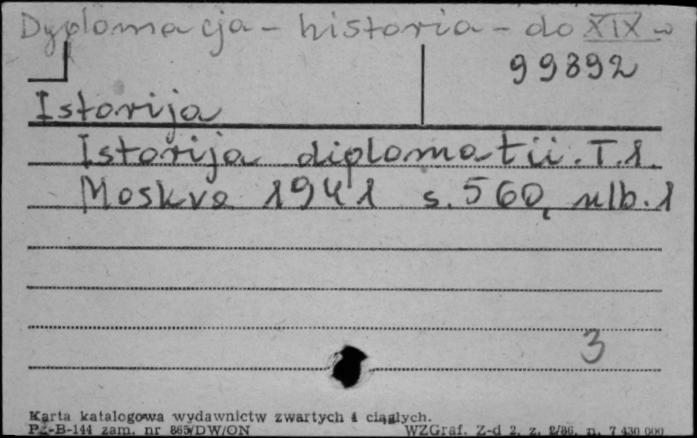 Dyplomacja - historia - do XIX w
99892
Istorija
Istorija diplomatii. T.1.
Moskva 1941 s. 560, nlb. 1
3
Karta katalogowa wydawnictw zwartych i ciągłych.
Pz-B-144 zam. nr 865/DW/ON WZGraf. Z-d 2, z. 2/86, n. 7 430 000